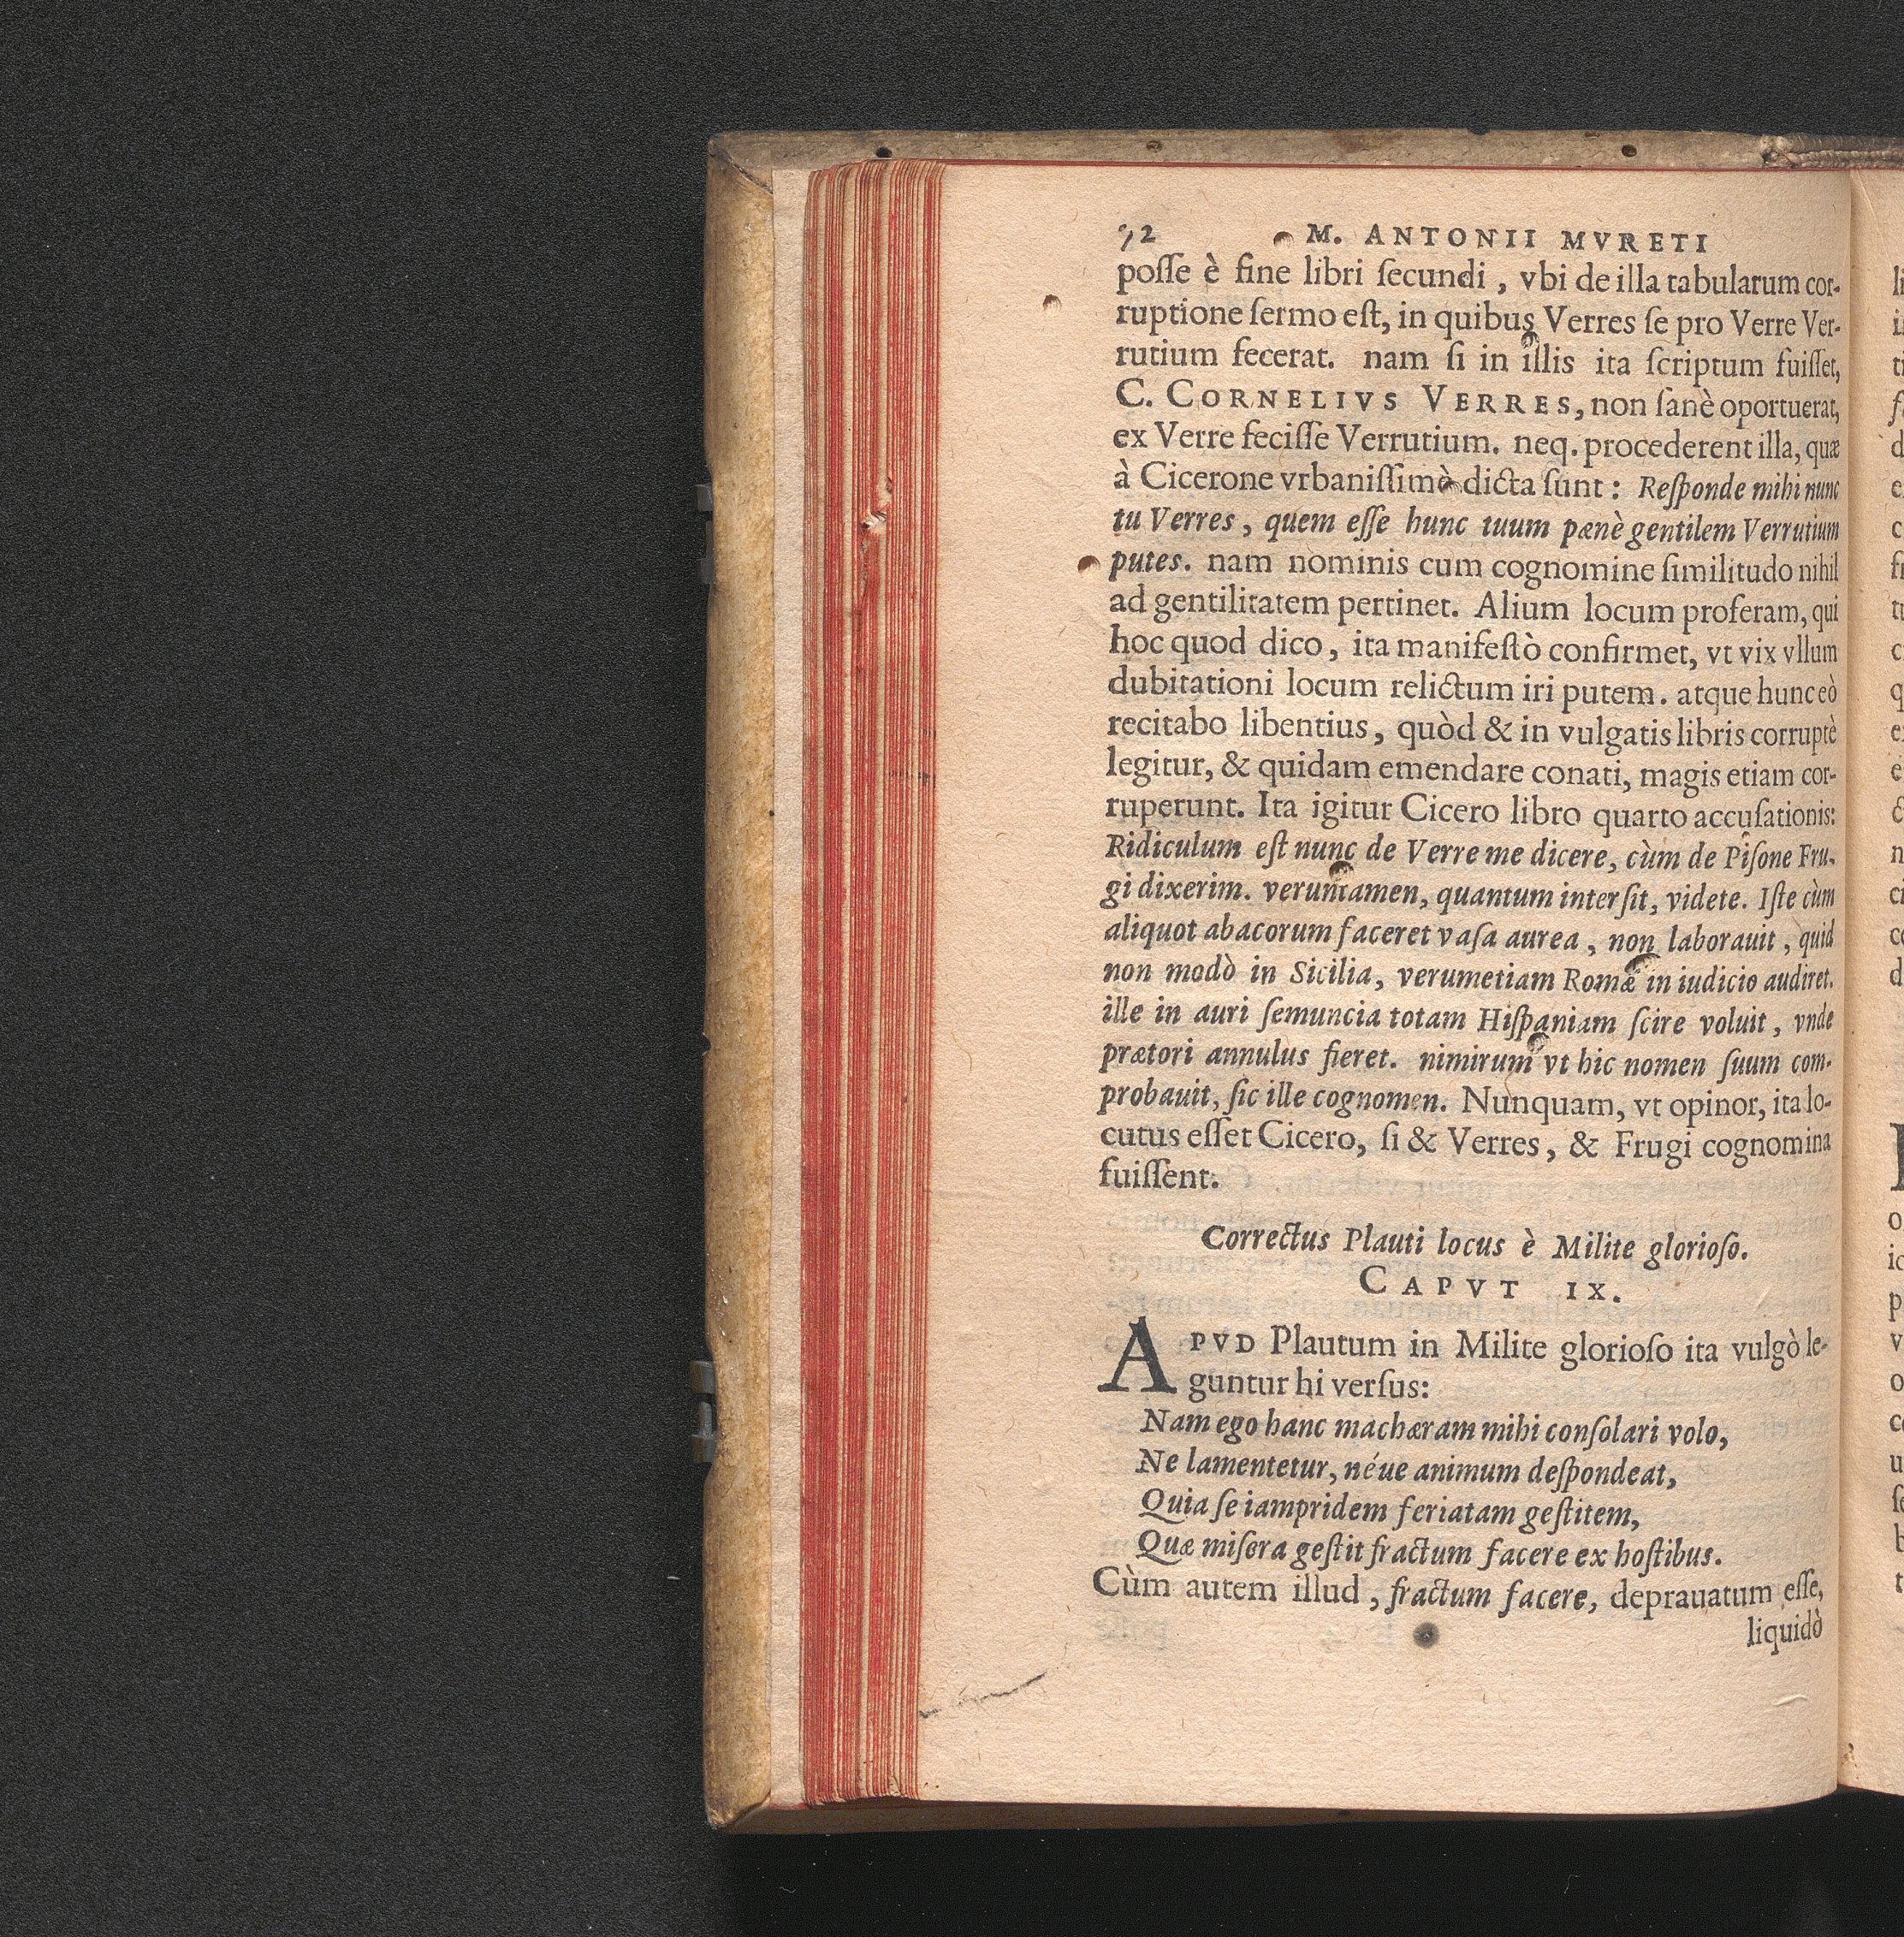 72 M. ANTONII MVRETI
posse è fine libri secundi, vbi de illa tabularum cor-
ruptione sermo est, in quibus Verres se pro Verre Ver-
rutium fecerat. nam si in illis ita scriptum fuisset,
C. CORNELIVS VERRES, non sanè oportuerat,
ex Verre fecisse Verrutium. neq. procederent illa, quæ
à Cicerone vrbanissimè dicta sunt: Responde mihi nunc
tu Verres, quem esse hunc tuum pænè gentilem Verrutium
putes. nam nominis cum cognomine similitudo nihil
ad gentilitatem pertinet. Alium locum proferam, qui
hoc quod dico, ita manifestò confirmet, vt vix vllum
dubitationi locum relictum iri putem. atque hunc eò
recitabo libentius, quòd & in vulgatis libris corruptè
legitur, & quidam emendare conati, magis etiam cor-
ruperunt. Ita igitur Cicero libro quarto accusationis:
Ridiculum est nunc de Verre me dicere, cùm de Pisone Fru-
gi dixerim. veruntamen, quantum intersit, videte. Iste cùm
aliquot abacorum faceret vasa aurea, non laborauit, quid
non modò in Sicilia, verumetiam Romæ in iudicio audiret.
ille in auri semuncia totam Hispaniam scire voluit, vnde
prætori annulus fieret. nimirum vt hic nomen suum com-
probauit, sic ille cognomen. Nunquam, vt opinor, ita lo-
cutus esset Cicero, si & Verres, & Frugi cognomina
fuissent.
Correctus Plauti locus è Milite glorioso.
CAPVT IX.
APVD Plautum in Milite glorioso ita vulgò le-
guntur hi versus:
Nam ego hanc machæram mihi consolari volo,
Ne lamentetur, néue animum despondeat,
Quia se iampridem feriatam gestitem,
Quæ misera gestit fractum facere ex hostibus.
Cùm autem illud, fractum facere, deprauatum esse,
liquidò